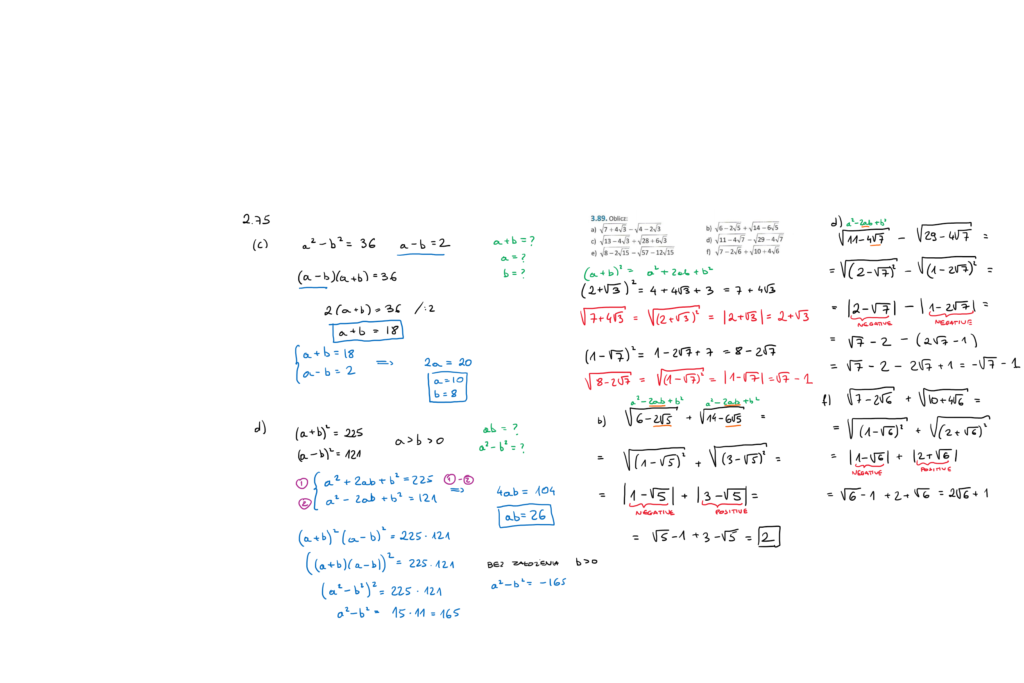 2.75
(c) a² − b² = 36 a − b = 2 a + b = ?
a = ?
b = ?
(a − b)(a + b) = 36
2(a + b) = 36 /:2
a + b = 18
{ a + b = 18
a − b = 2 => 2a = 20
a = 10
b = 8
d) (a+b)² = 225
(a−b)² = 121 a > b > 0 ab = ?
a² − b² = ?
① { a² + 2ab + b² = 225 ① − ②
② a² − 2ab + b² = 121 => 4ab = 104
ab = 26
(a+b)² (a−b)² = 225 · 121
((a+b)(a−b))² = 225 · 121
(a² − b²)² = 225 · 121
a² − b² = 15 · 11 = 165
BEZ ZAŁOŻENIA b > 0
a² − b² = −165
3.89. Oblicz:
a) √(7 + 4√3) − √(4 − 2√3) b) √(6 − 2√5) + √(14 − 6√5)
c) √(13 − 4√3) + √(28 + 6√3) d) √(11 − 4√7) − √(29 − 4√7)
e) √(8 − 2√15) − √(57 − 12√15) f) √(7 − 2√6) + √(10 + 4√6)
(a+b)² = a² + 2ab + b²
(2+√3)² = 4 + 4√3 + 3 = 7 + 4√3
√(7+4√3) = √((2+√3)²) = |2+√3| = 2+√3
(1−√7)² = 1 − 2√7 + 7 = 8 − 2√7
√(8−2√7) = √((1−√7)²) = |1−√7| = √7 − 1
a² − 2ab + b² a² − 2ab + b²
b) √(6 − 2√5) + √(14 − 6√5) =
= √((1−√5)²) + √((3−√5)²) =
= |1−√5| + |3−√5| =
NEGATIVE POSITIVE
= √5 − 1 + 3 − √5 = 2
d) a² − 2ab + b²
√(11 − 4√7) − √(29 − 4√7) =
= √((2−√7)²) − √((1−2√7)²) =
= |2−√7| − |1−2√7| =
NEGATIVE NEGATIVE
= √7 − 2 − (2√7 − 1)
= √7 − 2 − 2√7 + 1 = −√7 − 1
f) √(7 − 2√6) + √(10 + 4√6) =
= √((1−√6)²) + √((2+√6)²)
= |1−√6| + |2+√6|
NEGATIVE POSITIVE
= √6 − 1 + 2 + √6 = 2√6 + 1